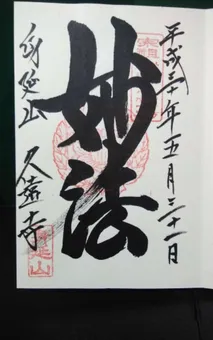 平成三十年五月三十一日
妙法
身延山
久遠寺